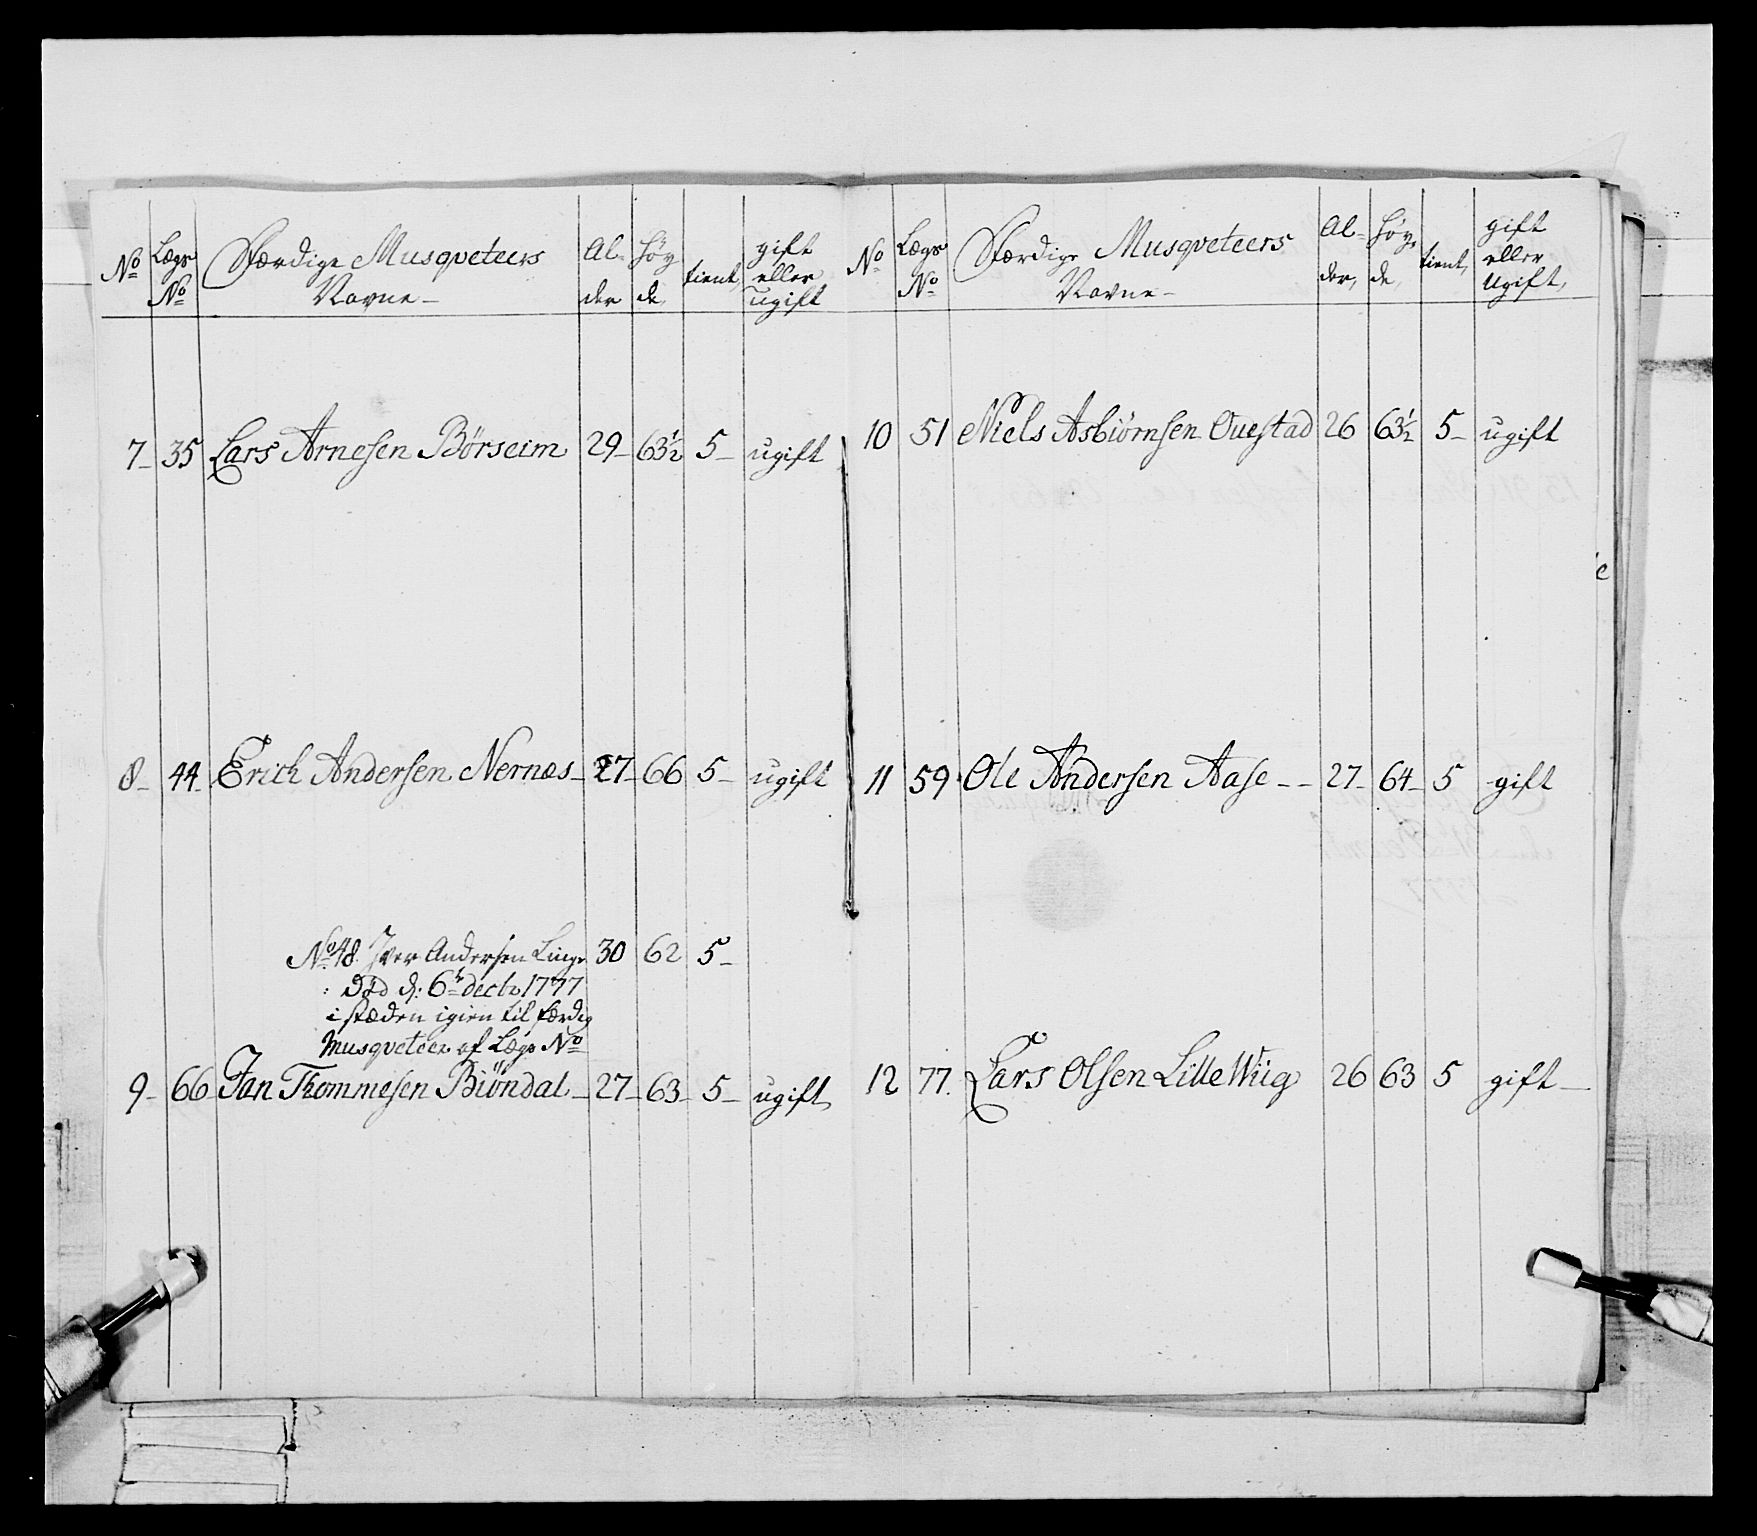 No Lægs No Færdige Musqveteers Navne - Al- der Høy de, tient, gift eller ugift
7 - 35 Lars Arnesen Börseim 29 - 63½ 5 - ugift
8 - 44 - Erich Andersen Nernæs - 27 - 66 5 - ugift
No 48. Iver Andersen Linge 30 62 5 -
Död d: 6te decbr 1777
i stæden igien til færdig
Musqveteer af Lægs No
9 - 66 Jan Thommesen Biöndal - 27 - 63 - 5 - ugift,
No Lægs No Færdige Musqveteers Navne - Al- der, Høy, de, tient, gift eller ugift,
10 51 Niels Asbiörnsen Ouestad 26 63½ 5 - ugift
11 59 Ole Andersen Aase - - 27 - 64 - 5 gift
12 77. Lars Olsen Lille Wiig 26 63 5 gift -